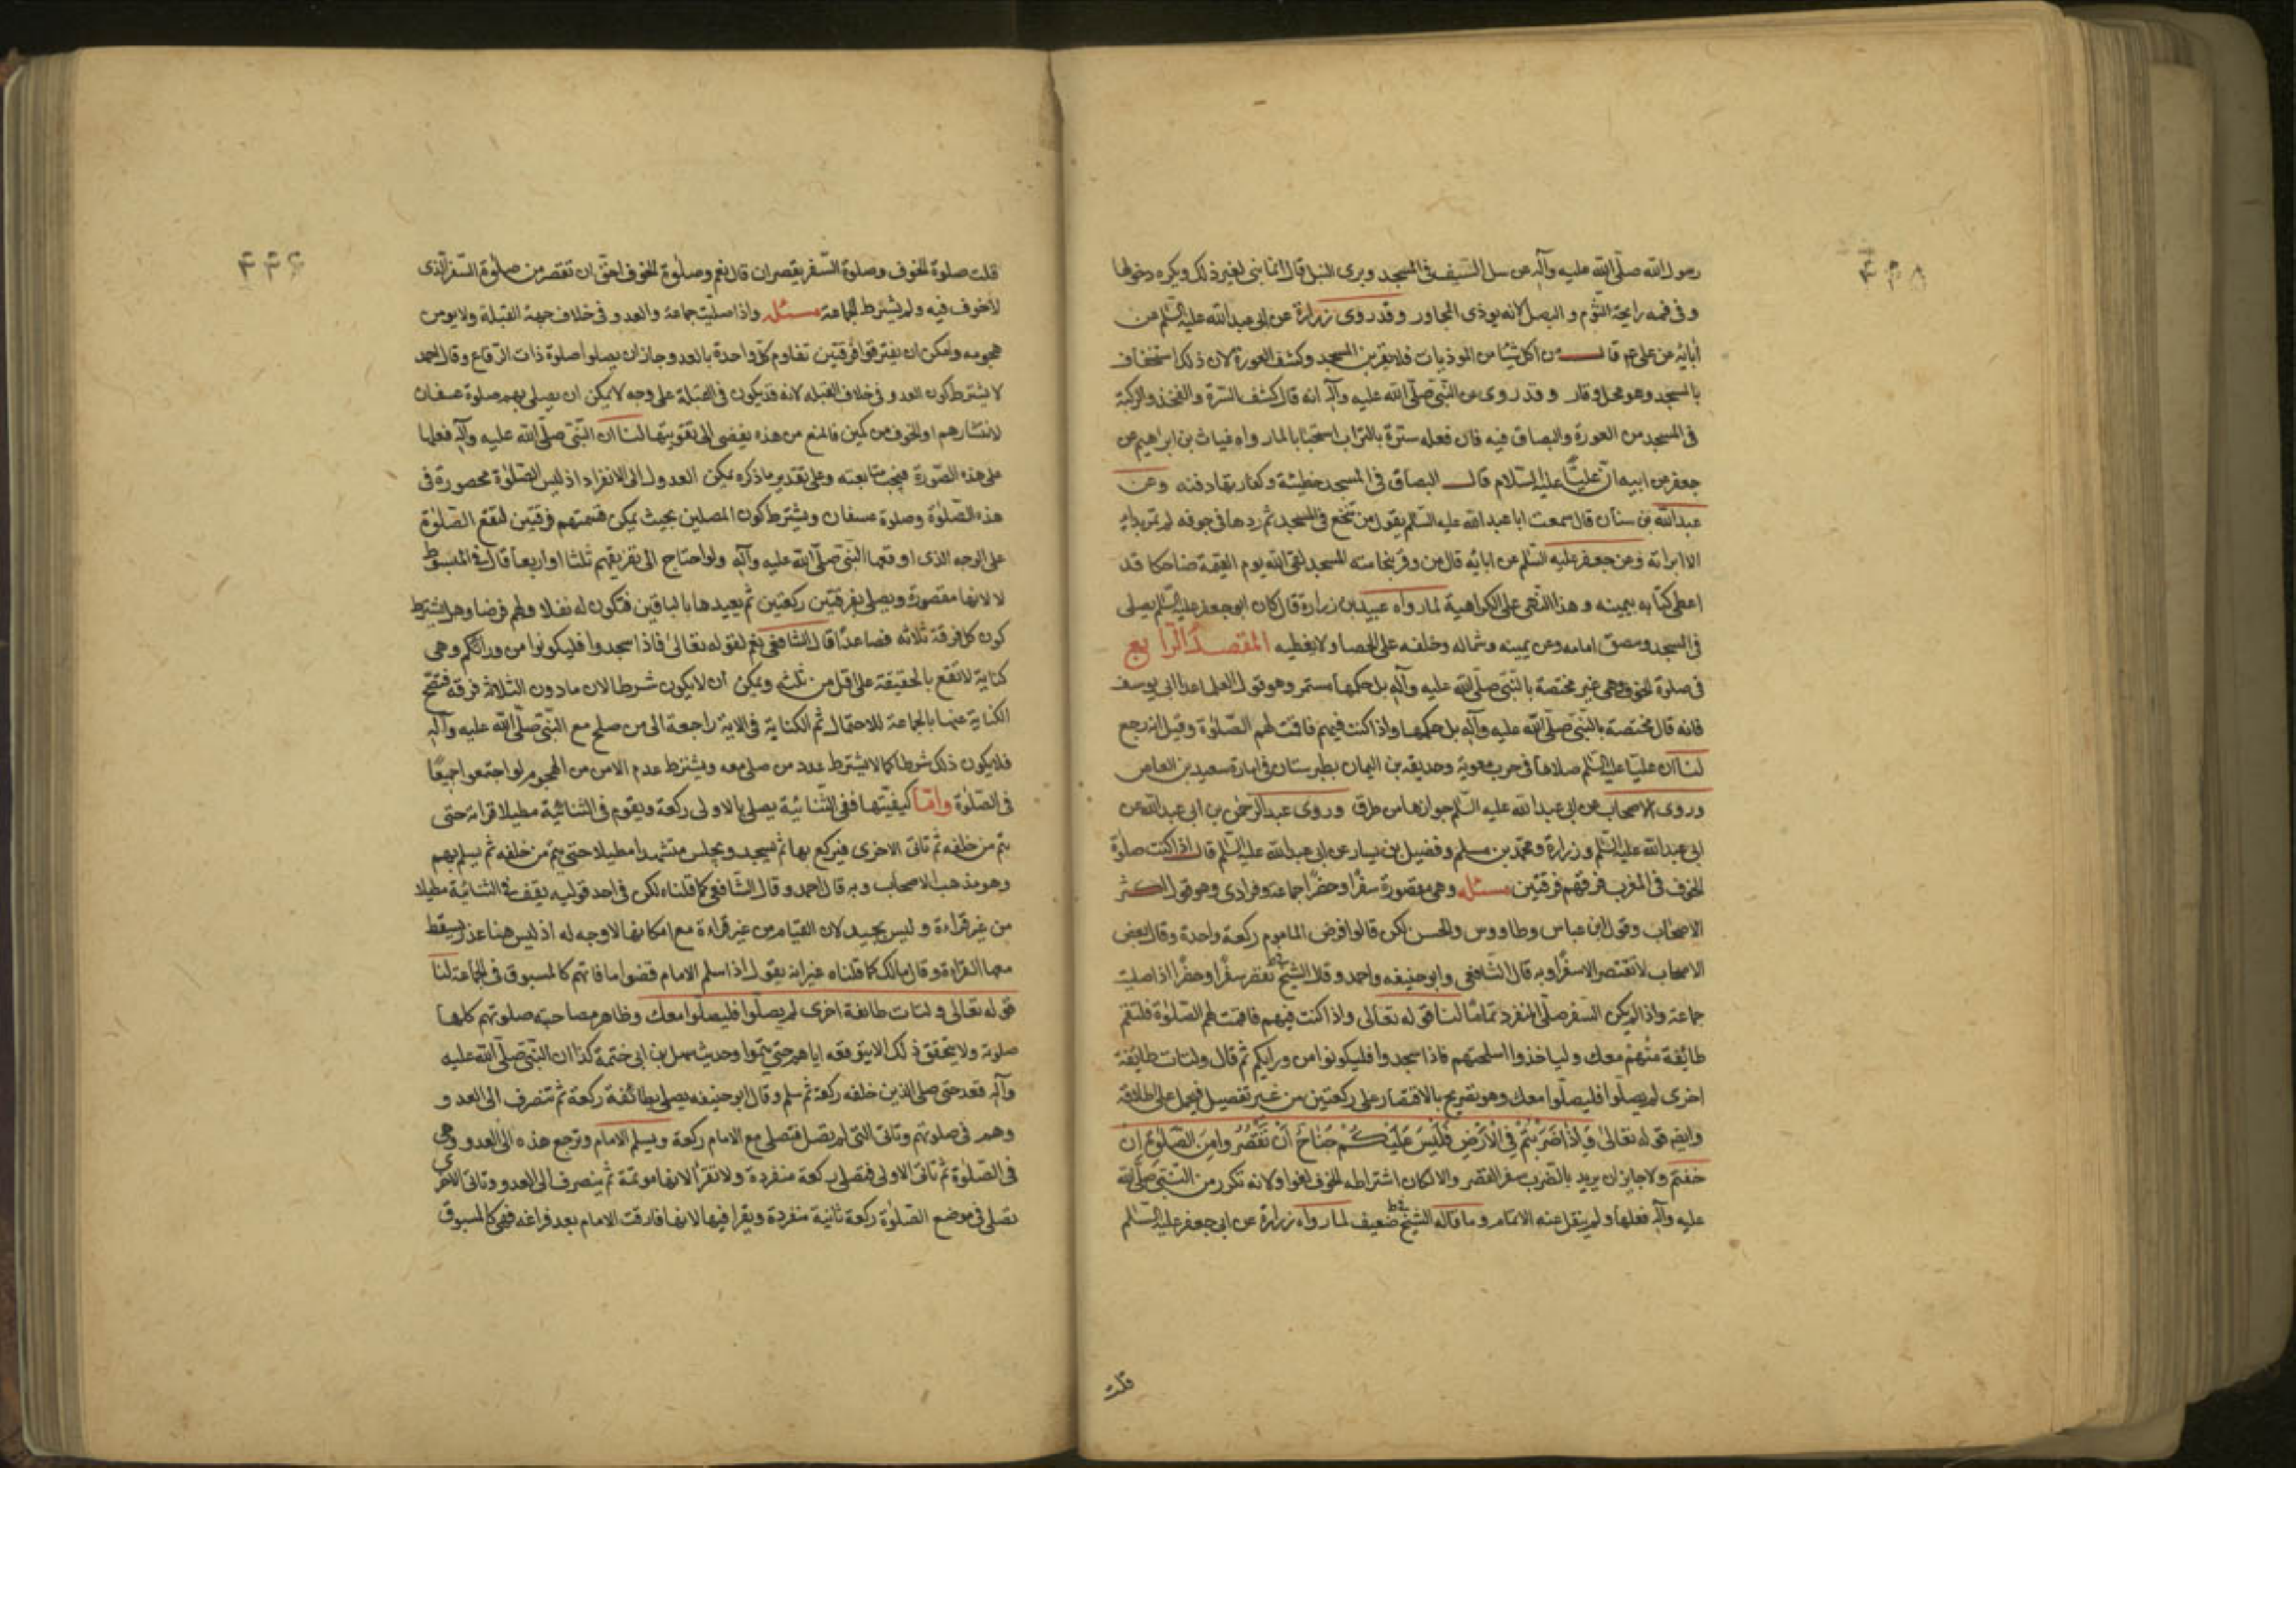 رسول الله صلّى الله عليه وآله عن سل السيف في المسجد وبرى النبل قال انما بنى لغير ذلك ويكره دخولها
وفي فمه رايحة الثوم والبصل لانه يوذى المجاور وقد روى زرارة عن ابى عبدالله عليه السّلم عن
ابائه عن على ع قال من اكل شيئا من الموذيات فلا يقربن المسجد وكشف العورة لان ذلك استخفاف
بالمسجد وهو محل وقار وقد روى عن النّبى صلّى الله عليه وآله انه قال كشف السرة والفخذ والركبة
في المسجد من العورة والبصاق فيه فان فعله ستره بالتراب استحبابا لما رواه غياث بن ابراهيم عن
جعفر عن ابيه انّ عليّا عليه السّلام قال البصاق في المسجد خطيئة وكفارتها دفنه وعن
عبدالله بن سنان قال سمعت ابا عبدالله عليه السّلم يقول من تنخع في المسجد ثم ردها في جوفه لم تمر بداء
الا ابراته وعن جعفر عليه السّلم عن ابائه قال من وقر بنخامته المسجد لقى الله يوم القيمة ضاحكا قد
اعطى كتابه بيمينه وهذا النهى على الكراهية لما رواه عبيد بن زرارة قال كان ابو جعفر عليه السّلم يصلى
في المسجد ويبصق امامه وعن يمينه وشماله وخلفه على الحصا ولا يغطيه المقصد الرابع
في صلوة الخوف وهى غير مختصة بالنّبى صلّى الله عليه وآله بل حكمها مستمر وهو قول العلما عدا ابى يوسف
فانه قال مختصة بالنّبى صلّى الله عليه وآله بل حكمها واذا كنت فيهم فاقمت لهم الصّلوة وقيل انه رجع
لنا ان عليّا عليه السّلم صلاها في حرب معوية وحذيفه بن اليمان بطبرستان في امارة سعيد بن العاص
وروى الاصحاب عن ابى عبدالله عليه السّلم جوازها من طرق وروى عبدالرحمن بن ابى عبدالله عن
ابى عبدالله عليه السّلم وزرارة ومحمّد بن مسلم وفضيل بن يسار عن ابى عبدالله عليه السّلم قال اذا كنت صلوة
الخوف في المغرب فرقهم فرقتين مسئله وهى مقصورة سفرًا وحضرًا جماعة وفرادى وهو قول اكثر
الاصحاب وقول ابن عباس وطاووس والحسن لكن قالوا فرض الماموم ركعة واحدة وقال بعض
الاصحاب لا تقتصر الا سفرًا وبه قال الشّافعى وابو حنيفه واحمد وقال الشيخ تقصر سفرًا وحضرًا اذا صليت
جماعة واذا لم يكن السّفر صلّى المنفرد تمامًا لنا قوله تعالى واذا كنت فيهم فاقمت لهم الصّلوة فلتقم
طائفة منهم معك ولياخذوا اسلحتهم فاذا سجدوا فليكونوا من ورايكم ثم قال ولتات طايفة
اخرى لم يصلّوا فليصلّوا معك وهو تصريح بالاقتصار على ركعتين من غير تفصيل فيحمل على اطلاقه
وايضم قوله تعالى وَإِذَا ضَرَبْتُمْ فِي الْأَرْضِ فَلَيْسَ عَلَيْكُمْ جُنَاحٌ أَنْ تَقْصُرُوا مِنَ الصَّلوةِ إِنْ
خفتم ولا جايز ان يريد بالضرب سفر القصر والا لكان اشتراطه الخوف لغوا ولانه تكرر من النّبى صلّى الله
عليه وآله فعلها ولم ينقل عنه الاتمام وما قاله الشيخ ضعيف لما رواه زرارة عن ابى جعفر عليه السّلم
قلت
قلت صلوة الخوف وصلوة السّفر يقصران قال نعم وصلوة الخوف احقّ ان تقصر من صلوة السّفر الّذى
لا خوف فيه ولم يشترط الجماعة مسئله واذا صليت جماعة والعدو في خلاف جهة القبلة ولا يومن
هجومه وامكن ان يفترقوا فرقتين تقاوم كل واحدة بالعدو جاز ان يصلوا صلوة ذات الرقاع وقال احمد
لا يشترط كون العدو في خلاف القبله لانه قد يكون في القبلة على وجه لا يمكن ان يصلى بهم صلوة عسفان
لانتشارهم او الخوف من كمين فالمنع من هذه يفضى الى تفويتها لنا ان النّبى صلّى الله عليه وآله فعلها
على هذه الصّورة فيجب متابعته وعلى تقدير ما ذكره يمكن العدول الى الانفراد اذ ليس الصّلوة محصورة في
هذه الصّلوة وصلوة عسفان ويشترط كون المصلين بحيث يمكن قسمتهم فرقتين لتقع الصّلوة
على الوجه الذى اوقعها النّبى صلّى الله عليه وآله ولو احتاج الى تفريقهم ثلثا او اربعا قال في المبسوط
لا لانها مقصورة ويصلى بفرقتين ركعتين ثم يعيدها بالباقين فتكون له نفلا ولهم فرضا وهل يشترط
كون كل فرقة ثلاثه فصاعدًا قال الشّافعى نعم لقوله تعالى فاذا سجدوا فليكونوا من ورائكم وهى
كناية لا تقع بالحقيقة على اقل من ثلثه ويمكن ان لا يكون شرطا لان ما دون الثلاثة فرقه فتصح
الكناية عنها بالجماعة للاحتمال ثم الكناية في الاية راجعة الى من صلى مع النّبى صلّى الله عليه وآله
فلا يكون ذلك شرطا كما لا يشترط عدد من صلى معه ويشترط عدم الامن من الهجوم لو اجتمعوا جميعًا
في الصّلوة وامّا كيفيّتها ففى الثّنائية يصلى بالاولى ركعة ويقوم في الثانية مطيلا قراءة حتى
يتم من خلفه ثم تاتى الاخرى فيركع بها ثم يسجد ويجلس متشهدا مطيلا حتى يتم من خلفه ثم يسلم بهم
وهو مذهب الاصحاب وبه قال احمد وقال الشّافعى كما قلناه لكن في احد قوليه يقف في الثانية مطيلا
من غير قراءة وليس بجيد لان القيام من غير قراءة مع امكانها لا وجه له اذ ليس هنا عذر يسقط
معها القراءة وقال مالك كما قلناه غير انه يقول اذا سلم الامام قضوا ما فاتهم كالمسبوق في الجماعة لنا
قوله تعالى ولتات طائفة اخرى لم يصلّوا فليصلّوا معك وظاهره مصاحبته صلوتهم كلها
صلوته ولا يتحقق ذلك الا بتوقفه اياهم حتى يتموا وحديث سهل بن ابى خثمة كذا ان النّبى صلّى الله عليه
وآله قعد حتى صلى الذين خلفه ركعة ثم سلم وقال ابو حنيفه يصلى بطائفة ركعة ثم تنصرف الى العدو
وهم في صلوتهم وتاتى التى لم يصل فتصلى مع الامام ركعة ويسلم الامام وترجع هذه الى العدو وهى
في الصّلوة ثم تاتى الاولى فتصلى ركعة منفردة ولا تقرأ لانها موتمة ثم ينصرف الى العدو وتاتى الاخرى
تصلى في موضع الصّلوة ركعة ثانية منفردة ويقرا فيها لانها فارقت الامام بعد فراغه فهى كالمسبوق